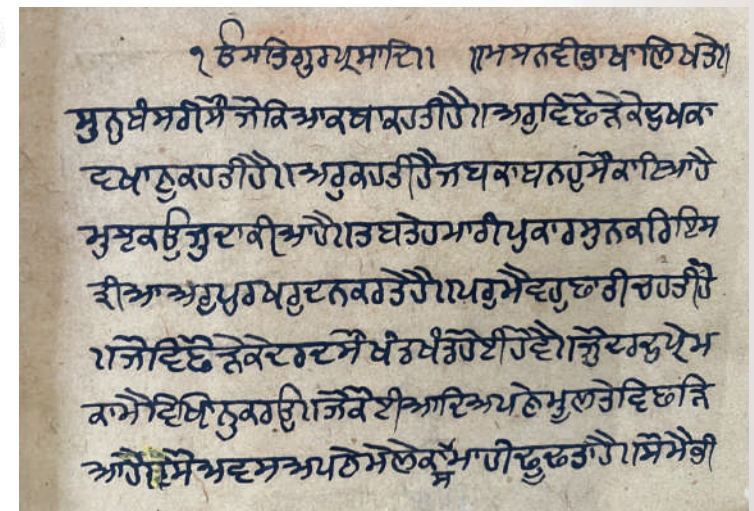 ੧ ੳ ਸਤਿਗੁਰਪ੍ਰਸਾਦਿ॥ ॥ਮਸਨਵੀਭਾਖਾਲਿਖਤੇ॥
ਸੁਨੁਬੰਸਰੀਸੌ ਜੋਕਿਆਕਥਾਕਹਤੀਹੈ॥ਅਰੁਵਿਛੋੜੇਕੇਦੁਖਕਾ
ਵਖਾਨੁਕਹਤੀਹੈ॥ਅਰੁਕਹਤੀਹੈਜਬਕਾਬਨਹੁਸੌਕਾਟਿਆਹੈ
ਮੁਝਕਉਜੁਦਾਕੀਆਹੈ॥ਤਬਤੇਹਮਾਰੀਪੁਕਾਰਸੁਨਕਰਿਇਸ
ਤ੍ਰੀਆਅਰੁਪੁਰਖਰੁਦਨਕਰਤੇਹੈ॥ਪਰੁਮੈਵਹੁਛਾਤੀਚਹਤੀਹੈ
॥ਜੋਵਿਛੋੜੇਕੇਦਰਦਸੌ ਖੰਡਖੰਡਹੋਈਹੋਵੈ॥ਜੁਦਰਦੁਪ੍ਰੇਮ
ਕਾਸੋਵਿਖਿਨੁਕਰਉ॥ਜੋਕੋਈਆਦਿਅਪਣੇਮੂਲਤੇਵਿਛੜਿ
ਆਹੈ ਅਵਸਅਪਣੇਮੇਲੇਕਾ ਢੂਢਤਾਹੈ॥ਸੋਮੈਭੀ